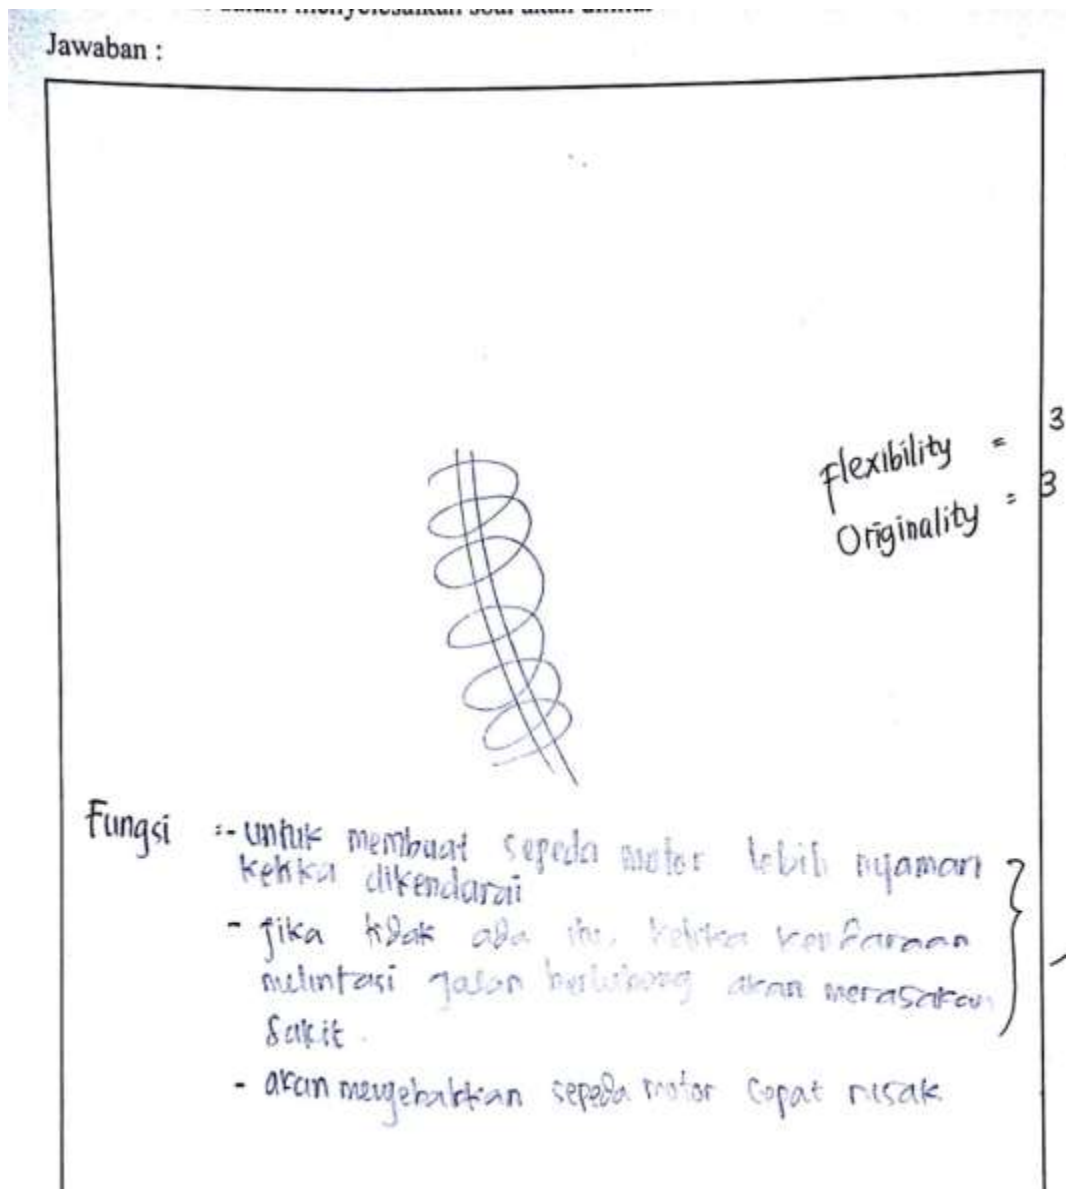 dalam menyelesaikan soal akan dinilai
Jawaban :
Flexibility = 3
Originality = 3
Fungsi :- untuk membuat sepeda motor lebih nyaman
ketika dikendarai
- jika tidak ada itu, ketika kendaraan
melintasi jalan berlubang akan merasakan
Sakit.
- akan menyebabkan sepeda motor cepat rusak